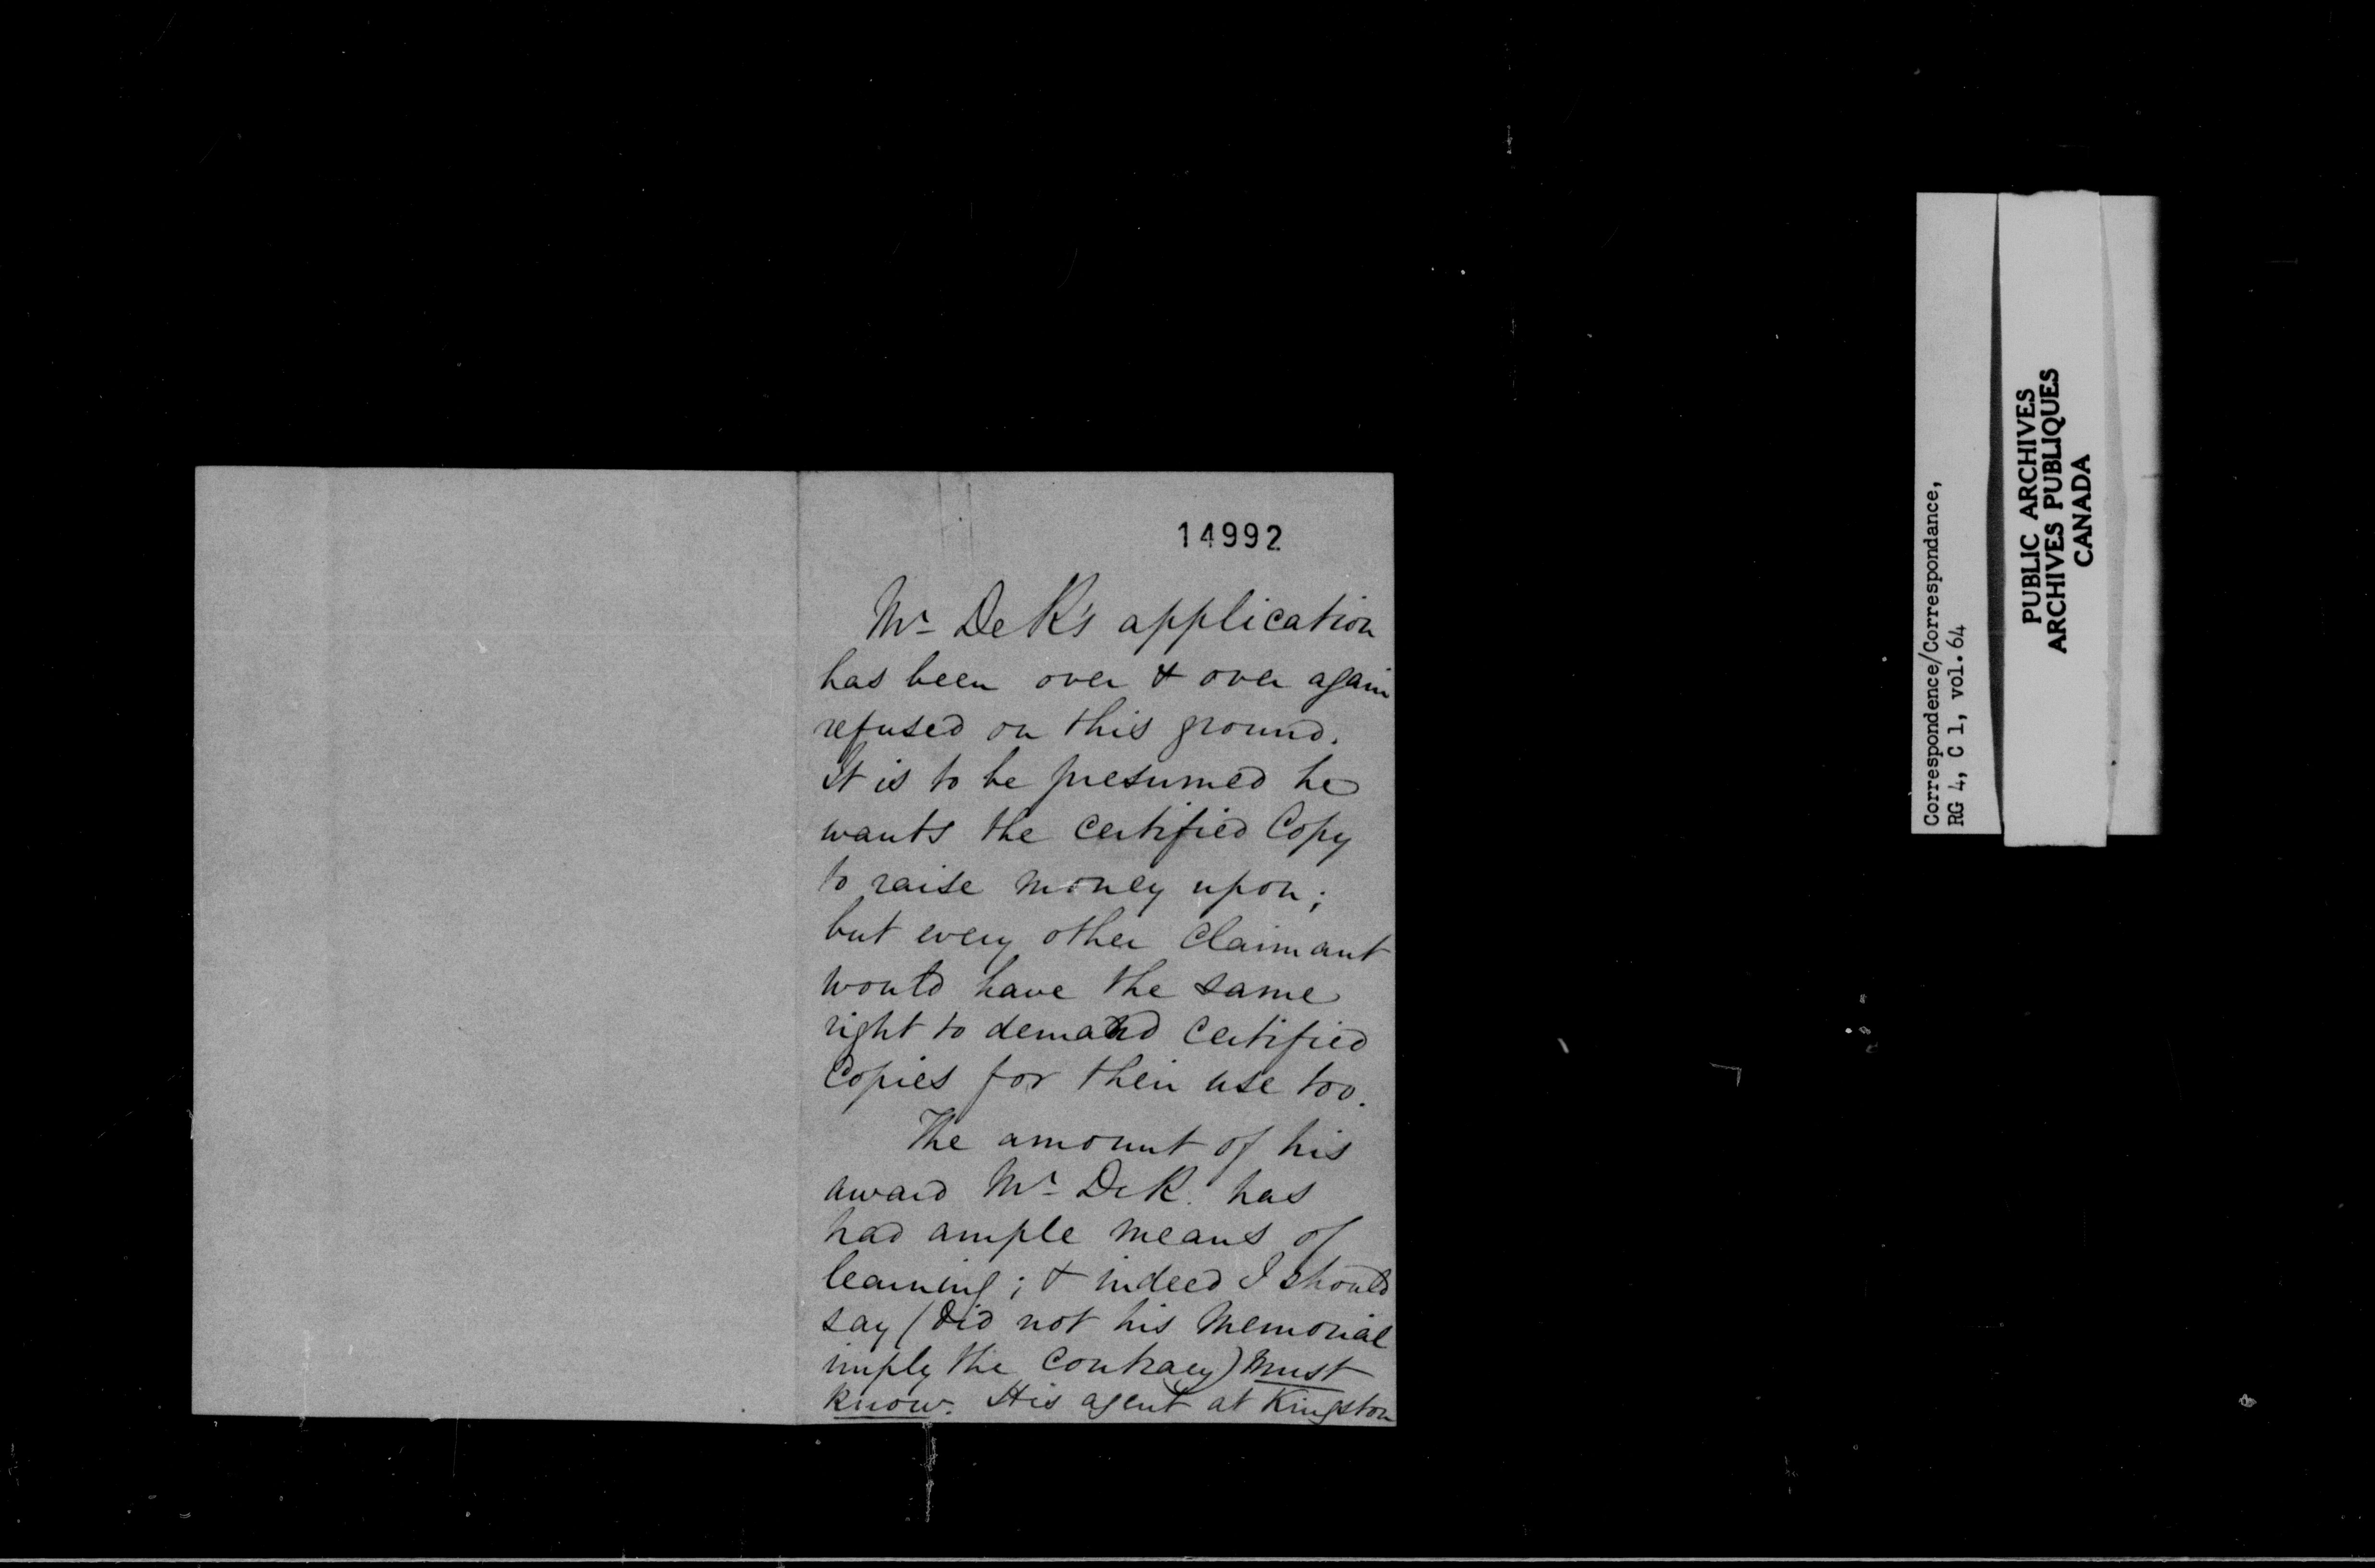 14992
Mr De R's application
has been over & over again
refused on this ground.
It is to be presumed he
wants the certified Copy
to raise money upon;
but every other Claimant
would have the same
right to demand certified
Copies for their use too.
The amount of his
award Mr De R. has
had ample means of
learning; & indeed I should
say (did not his Memorial
imply the contrary) must
know. His agent at Kingston
Correspondence/Correspondance,
RG 4, C 1, vol. 64
PUBLIC ARCHIVES
ARCHIVES PUBLIQUES
CANADA